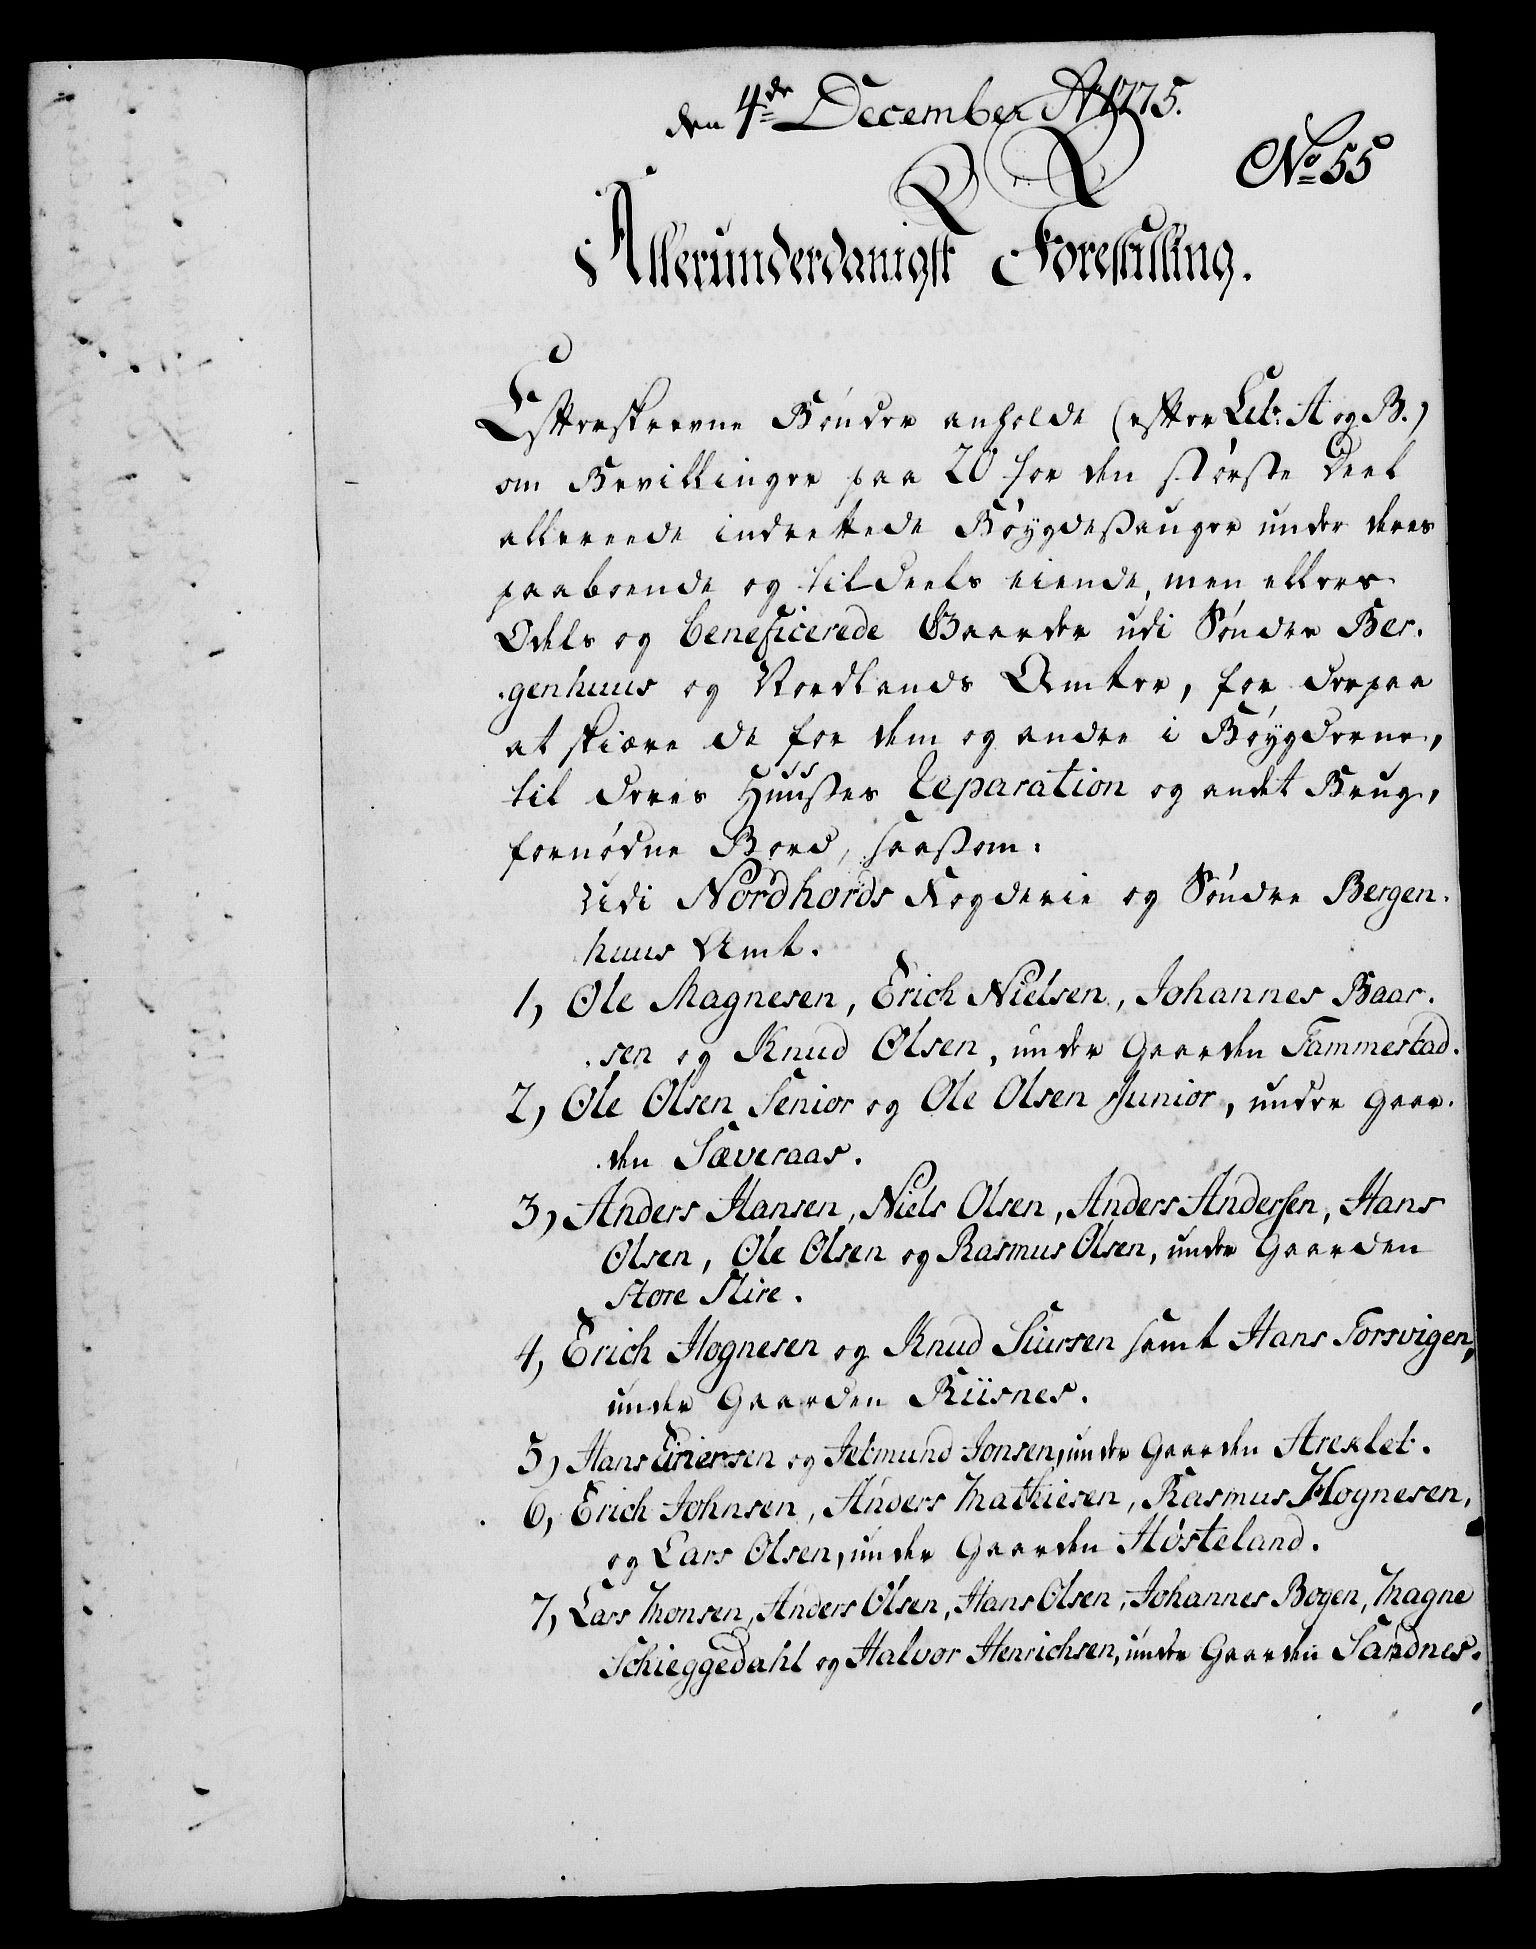 den 4de December Ao 1775.
No 55
Allerunderdanigst Forestilling.
Efterskrevne Bønder anholde (efter Lit: A og B.)
om Bevillinger paa 20 for den største Deel
allereede indrettede Bøygdesauger under deres
paaboende og tildeels eiende, men ellers
Odels og beneficerede Gaarder udi Sønder Ber-
genhuus og Nordlands Amter, for derpaa
at skiære de for dem og andre i Bøygderne,
til deres Huusses Reparation og andet Brug,
fornødne Bord, saasom:
Udi Nordhords Fogderie og Søndre Bergen-
huus Amt.
1, Ole Magnesen, Erich Nielsen, Johannes Baar-
sen og Knud Olsen, under Gaarden Tammestad.
2, Ole Olsen Senior og Ole Olsen Junior, under Gaar-
den Sæveraas.
3, Anders Hansen, Niels Olsen, Anders Andersen, Hans
Olsen, Ole Olsen og Rasmus Olsen, under Gaarden
Store Nire.
4, Erich Hognesen og Knud Siursen samt Hans Torsvigen,
under Gaarden Riisnes.
5, Hans og Jetmund Jonsen, under Gaarden
6, Erich Johnsen, Anders Mathiesen, Rasmus Hognesen,
og Lars Olsen, under Gaarden Høsteland.
7, Lars Monsen, Anders Olsen, Hans Olsen, Johannes Bogen, Magne
Schieggedahl og Halvor Henrichsen, under Gaarden Sandnes.